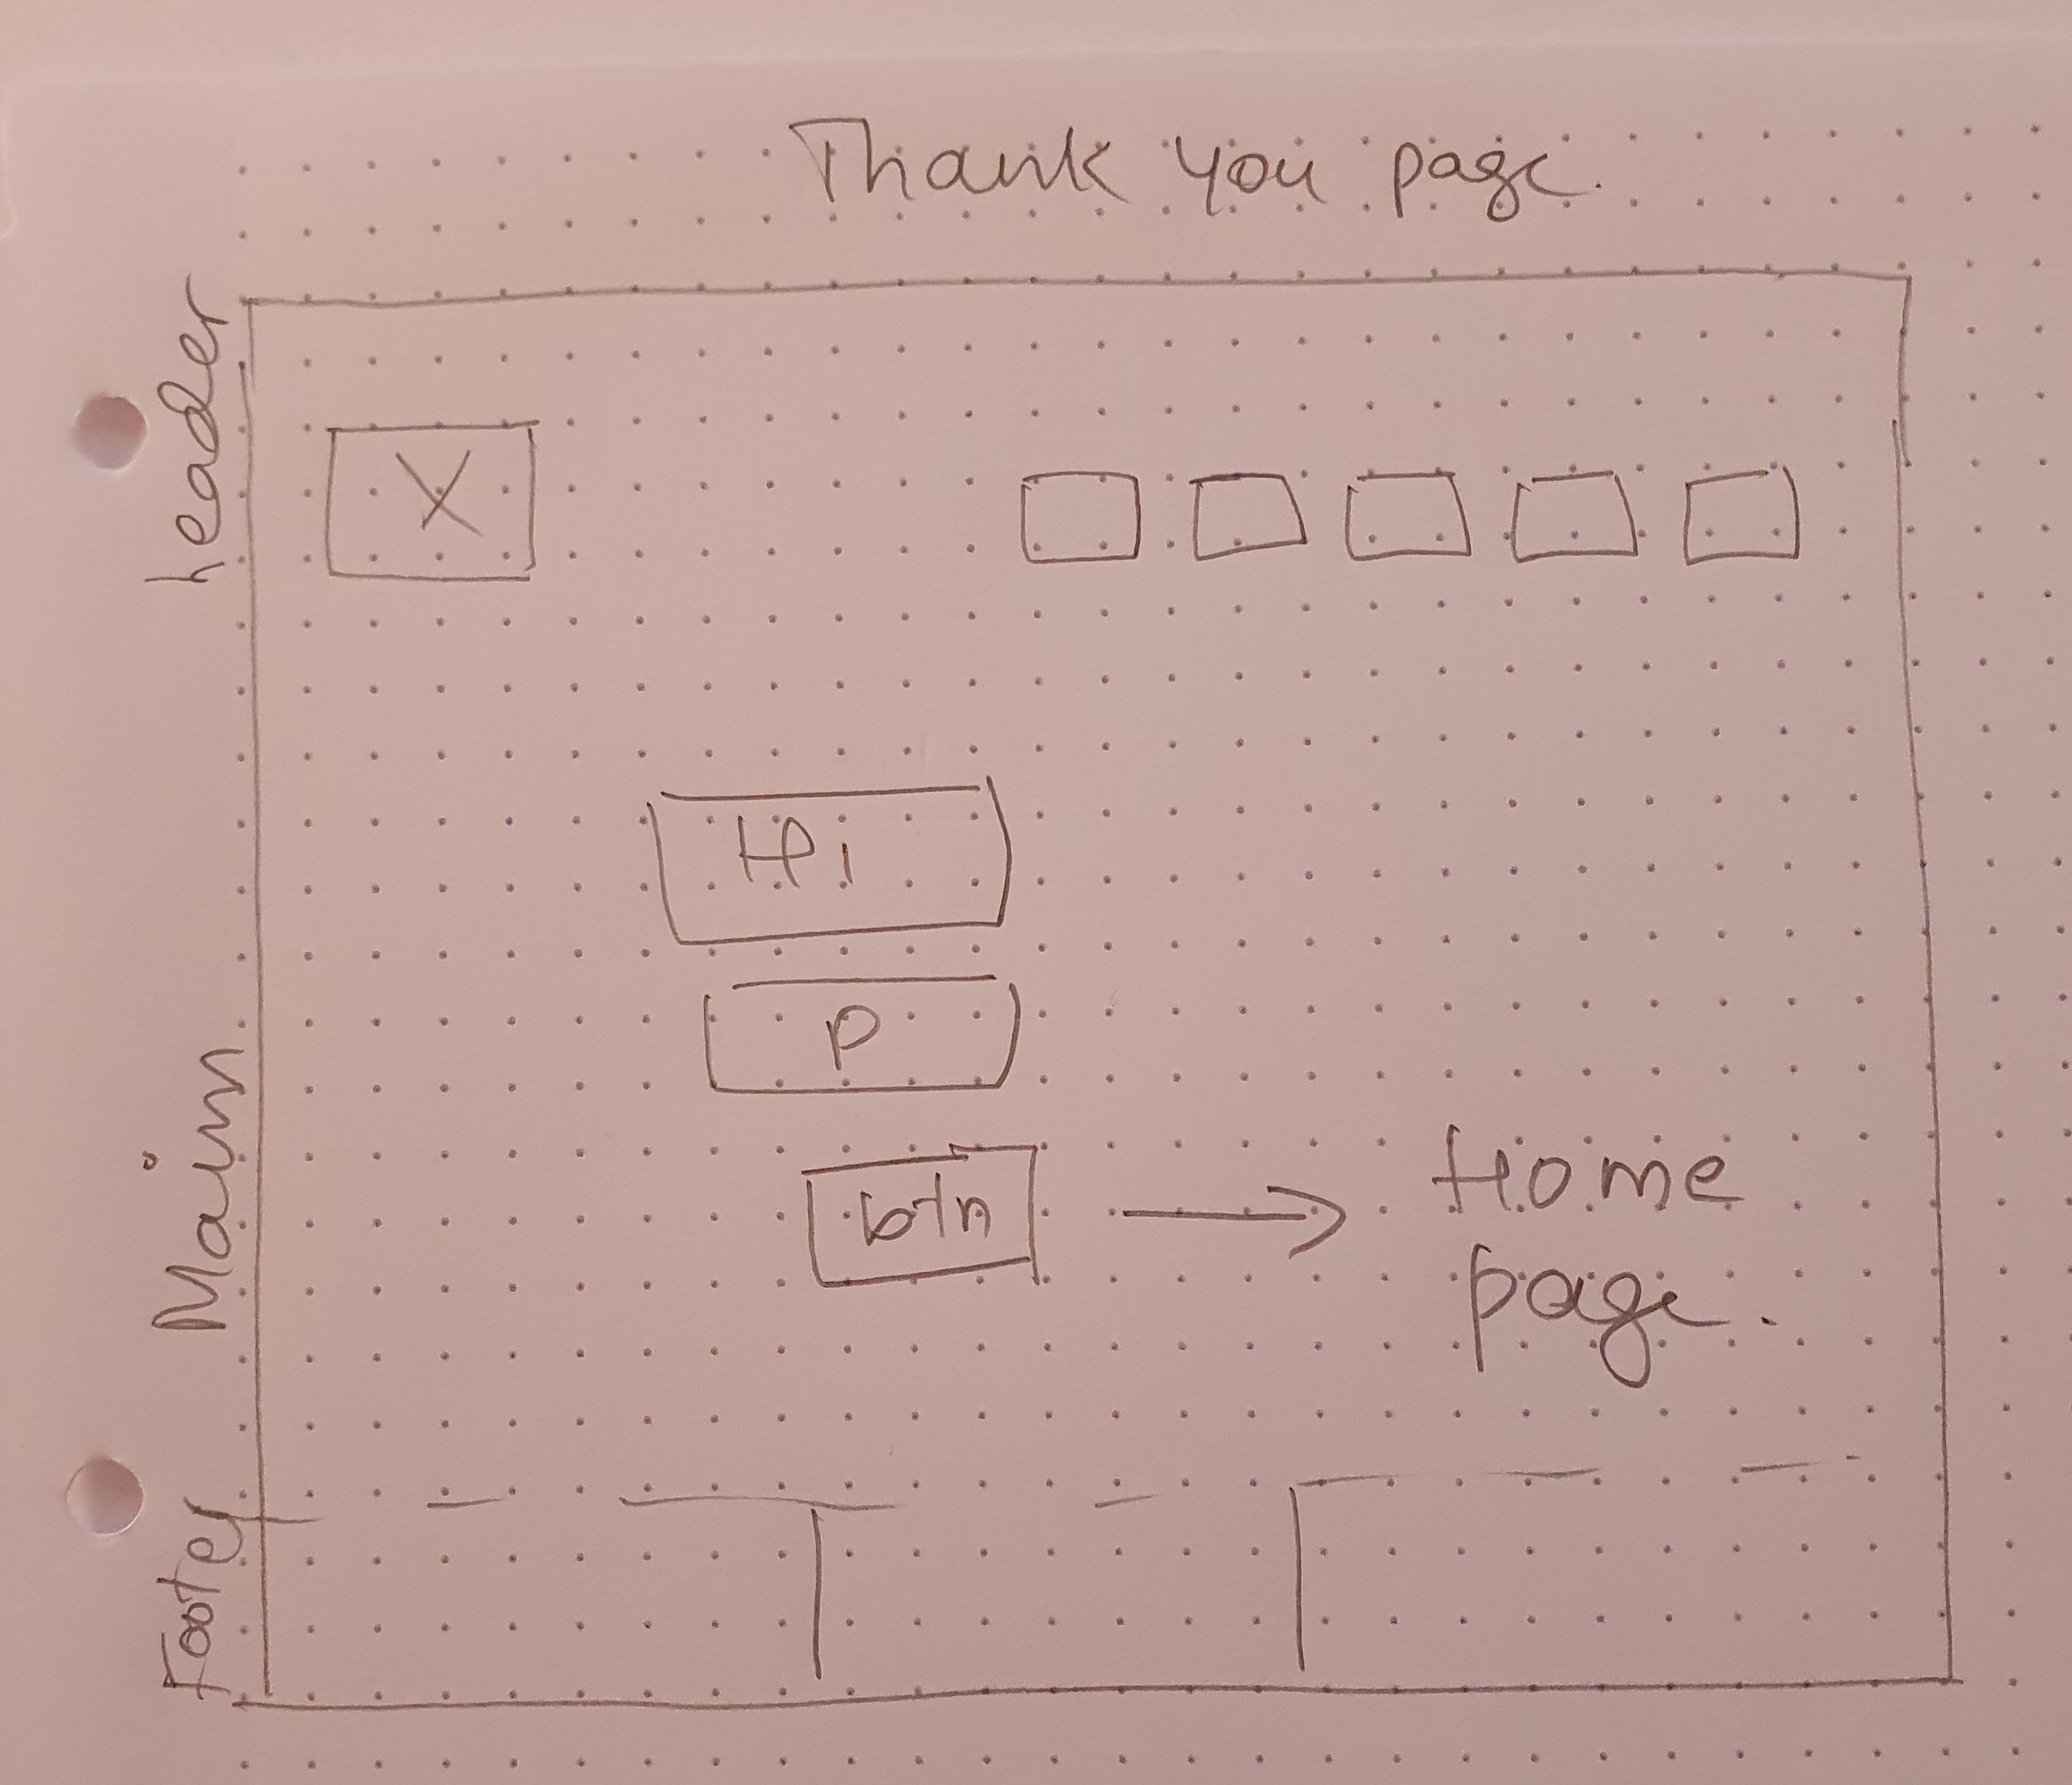 Thank you page.
header
X
Hi
P
btn
Home
page.
Main
Footer